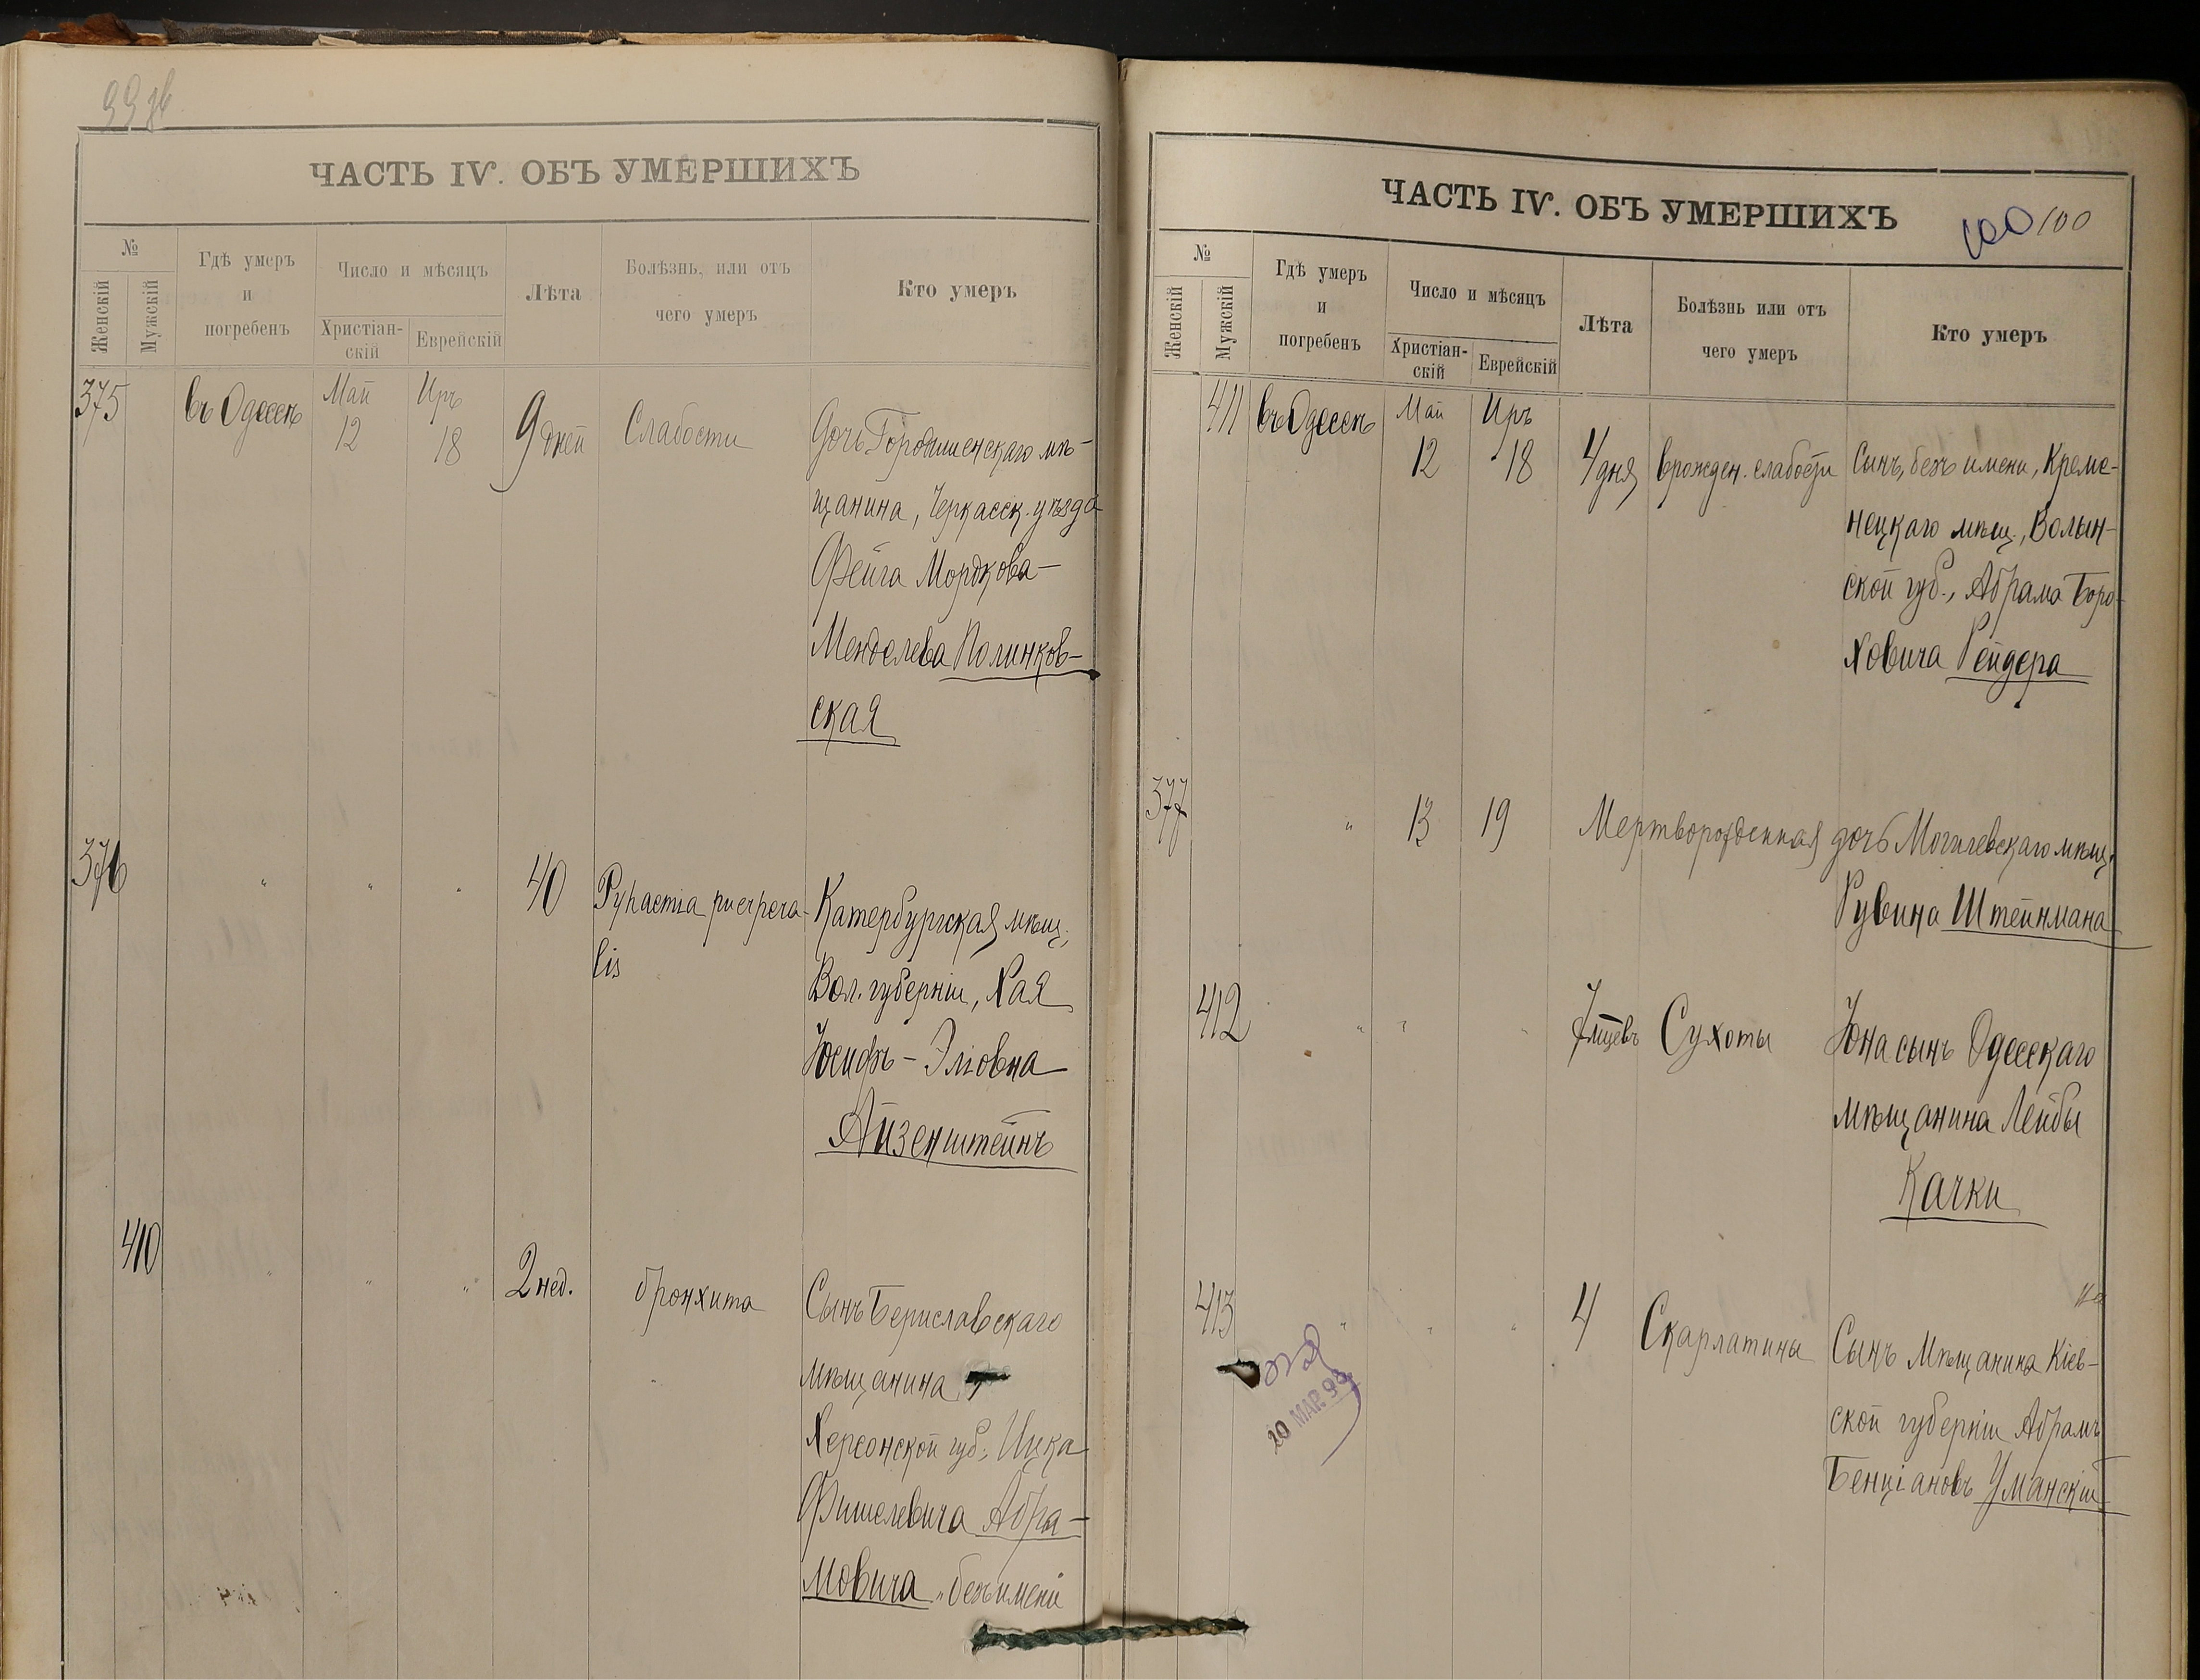 ЧАСТЬ IV. ОБЪ УМЕРШИХЪ
№
Женскій
Мужскій
Гдѣ умеръ
и
погребенъ
Число и мѣсяцъ
Христіан-
скій
Еврейскій
Лѣта
Болѣзнь, или отъ
чего умеръ
Кто умеръ
375
въ Одессѣ
Май
12
Иръ
18
9 дней
Слабости
Дочь Городищенскаго мѣ-
щанина, Черкасск. уѣзда
Фейга Мордкова-
Менделева Полинков-
ская
376
"
"
"
40
lis
Катербургская мѣщ.
Вол. губерніи, Хая
Іосифъ-Эліовна
Айзенштейнъ
410
"
"
"
2 нед.
бронхита
Сынъ Бериславскаго
мѣщанина
Херсонской губ., Ицка
Фишелевича Абра-
мовича "безъ имени
ЧАСТЬ IV. ОБЪ УМЕРШИХЪ
100 100
№
Женскій
Мужскій
Гдѣ умеръ
и
погребенъ
Число и мѣсяцъ
Христіан-
скій
Еврейскій
Лѣта
Болѣзнь или отъ
чего умеръ
Кто умеръ
411
въ Одессѣ
Май
12
Иръ
18
4 дня
врожден. слабости
Сынъ, безъ имени, Креме-
нецкаго мѣщ., Волын-
ской губ., Абрама Боро-
ховича Рейдера
377
"
13
19
Мертворожденная дочь Могилевскаго мѣщ.
Рувина Штейнмана
412
"
"
"
7 мцевъ
Сухоты
Іона сынъ Одесскаго
мѣщанина Лейбы
Качки
413
"
"
"
4
Скарлатины
Сынъ мѣщанина Кіев-
ской губерніи Абрамъ
Бенціановъ Уманскій
20 МАР. 98